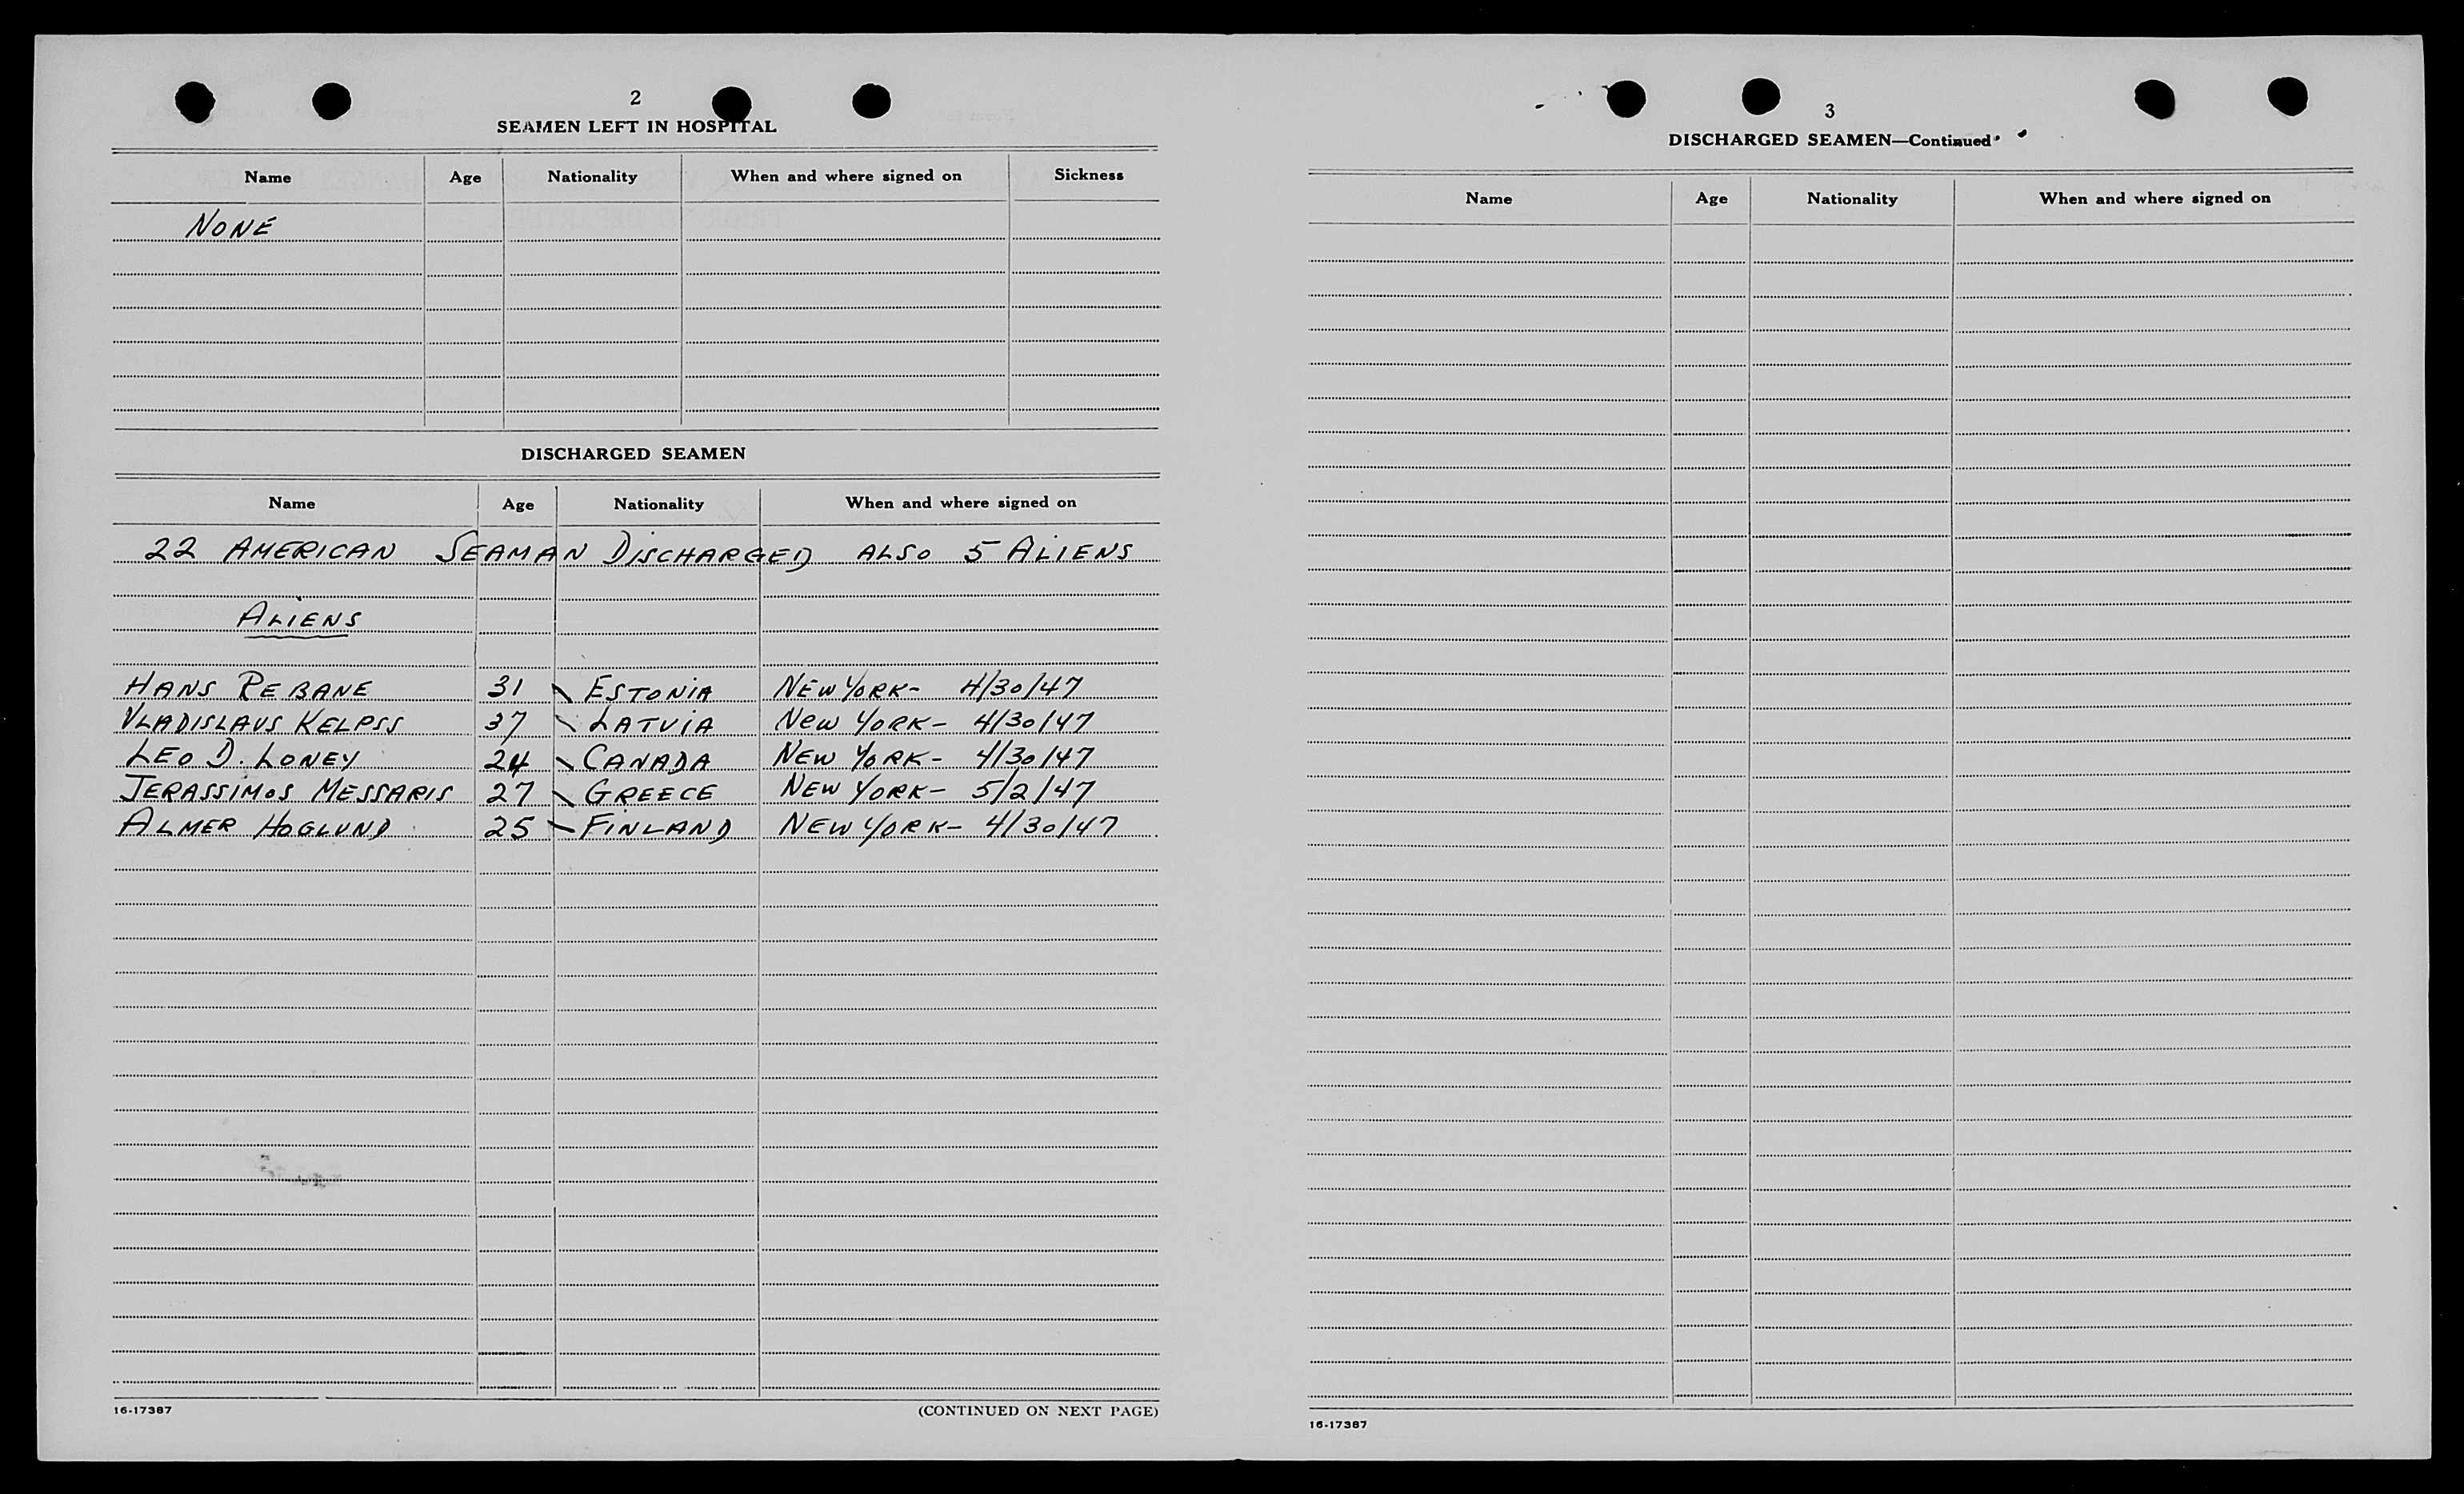 2
SEAMEN LEFT IN HOSPITAL
Name Age Nationality When and where signed on Sickness
NONE
DISCHARGED SEAMEN
Name Age Nationality When and where signed on
22 AMERICAN SEAMAN DISCHARGED ALSO 5 ALIENS
ALIENS
HANS REBANE 31 ESTONIA NEW YORK- 4/30/47
VLADISLAVS KELPSS 37 LATVIA NEW YORK- 4/30/47
LEO D. LONEY 24 CANADA NEW YORK- 4/30/47
JERASSIMOS MESSARIS 27 GREECE NEW YORK- 5/2/47
ALMER HOGLUND 25 FINLAND NEW YORK- 4/30/47
16-17387 (CONTINUED ON NEXT PAGE)
3
DISCHARGED SEAMEN—Continued
Name Age Nationality When and where signed on
16-17387